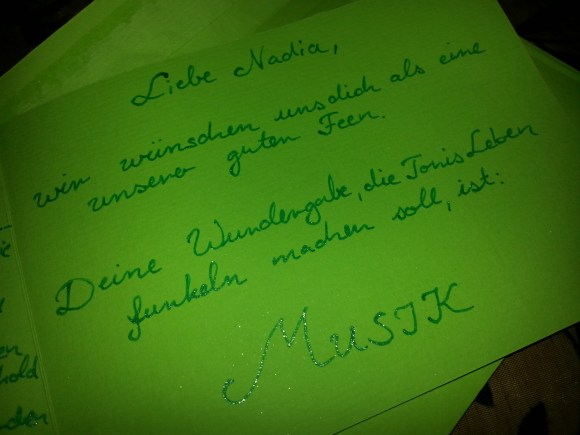 Liebe Nadia,
wir wünschen uns dich als eine
unserer guten Feen.
Deine Wundergabe, die Tonis Leben
funkeln machen soll, ist:
MUSIK
hold